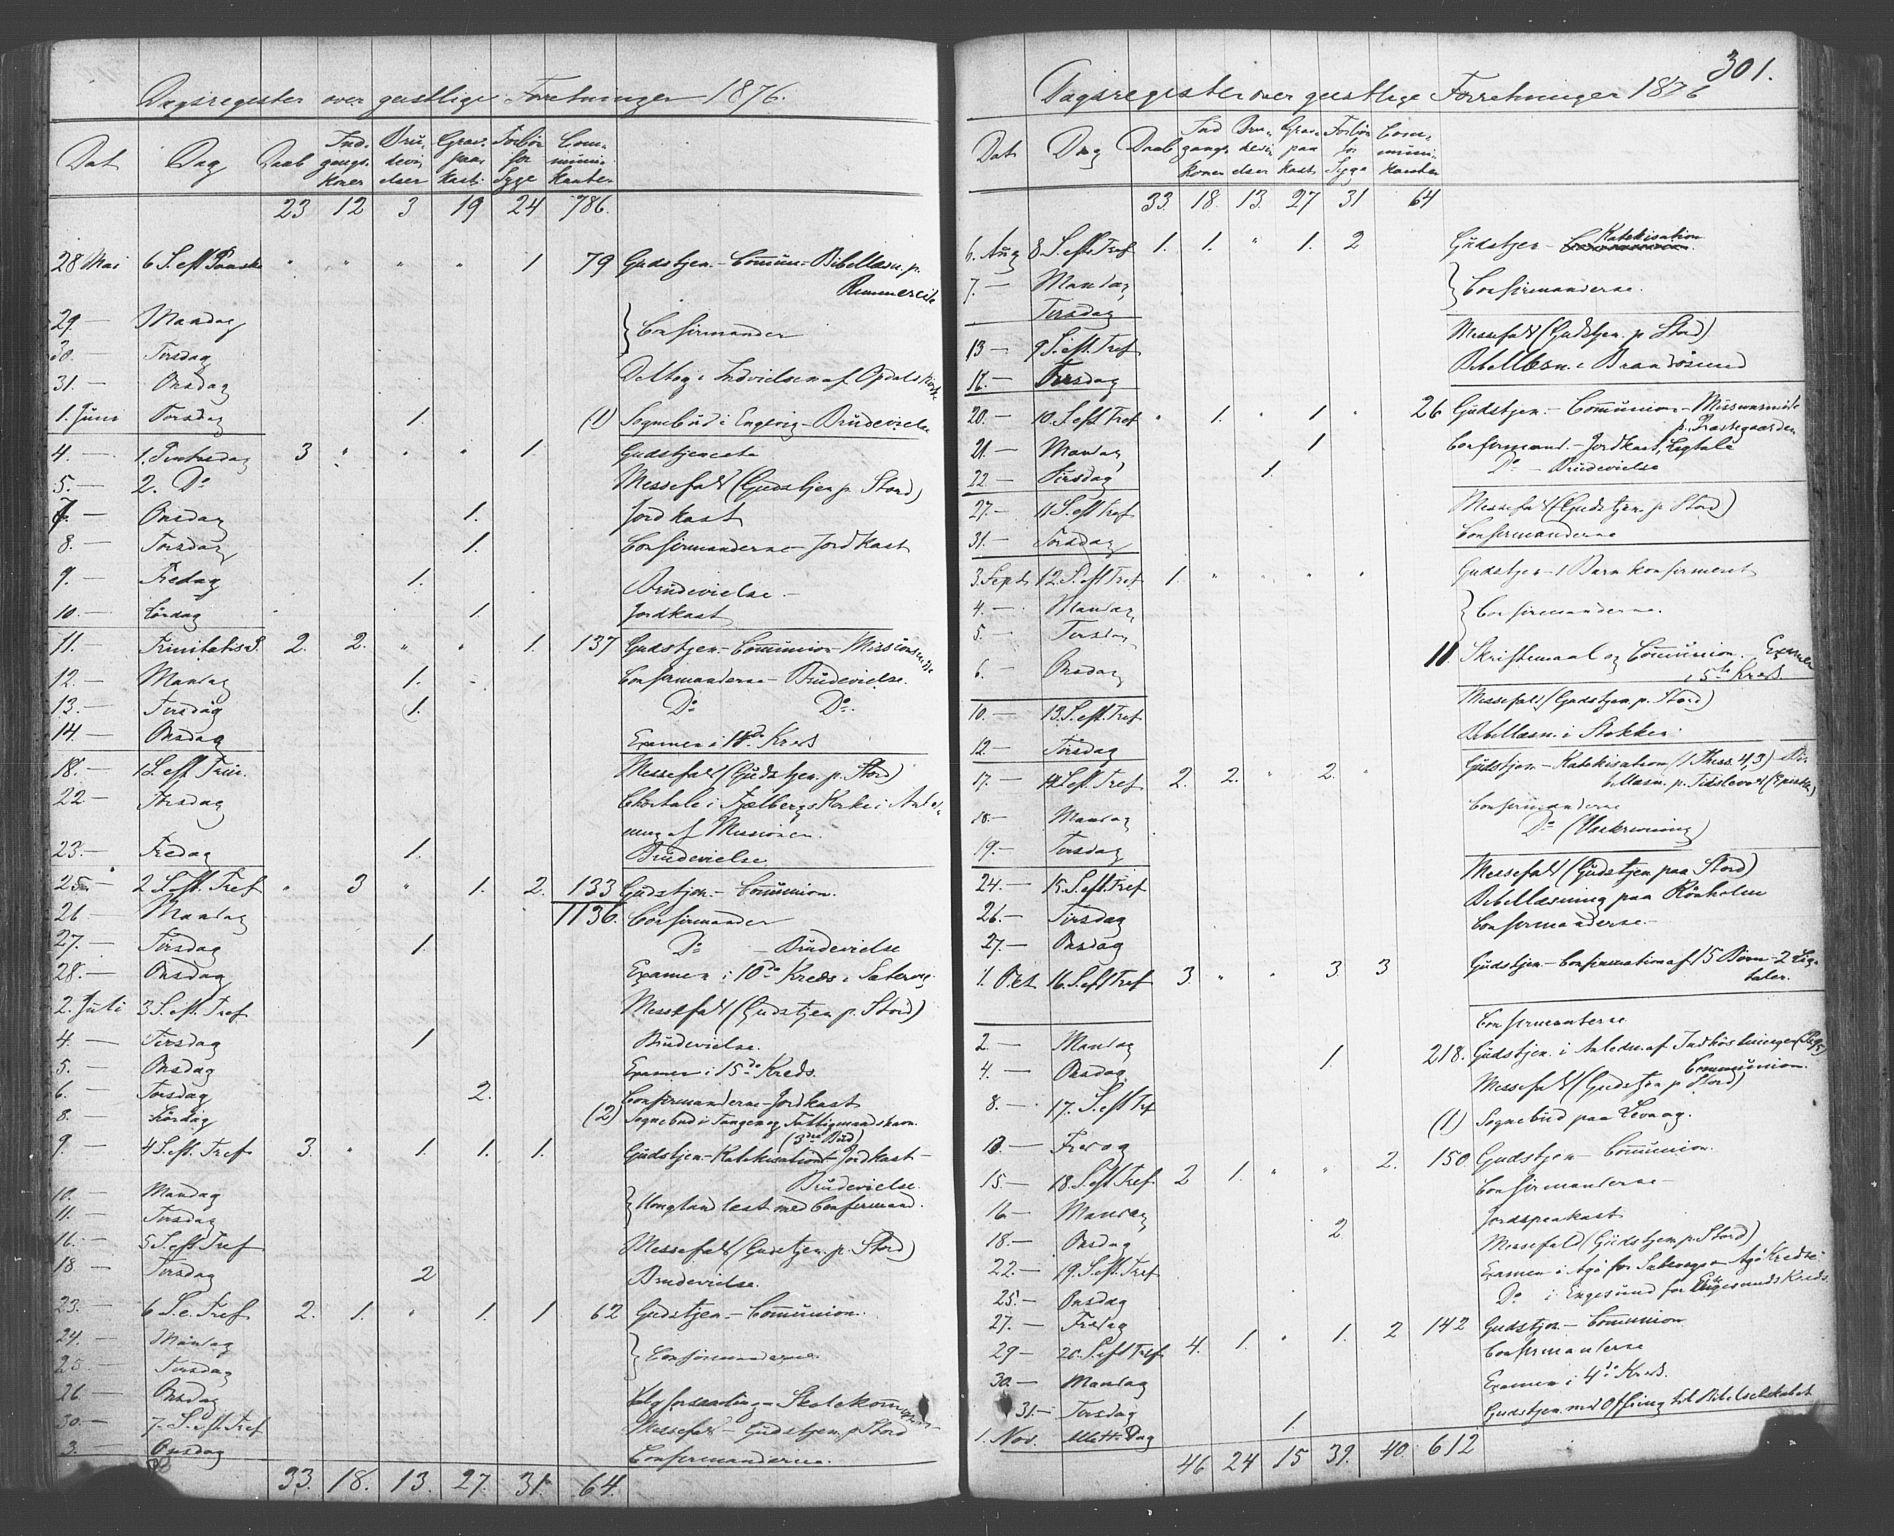 Dagsregister over geistlige Forretninger 1876.
Dat Dag Daab Ind- gangs- koner Bru- devi- elser Grav- paa- kast. Forbön for Syge Com- muni- kanter
23 12 3 19 24 786.
28 Mai 6 S. eft Paaske " " " " 1 79 Gudstjen. - Commun - Bibellæsn. p.
Rummereite
29. — Mandag } Confirmander
30. — Tirsdag
31. — Onsdag Deltog i Indvielsen af Opdals Kirke
1. Juni Torsdag 1. (1) Sognebud i Engevig - Brudevielse
4. — 1. Pintsedag 3 " " " 1. Gudstjeneste
5. — 2. Do Messefald (Gudstjen p. Stord)
7. — Onsdag 1. Jordkast
8. — Torsdag 1. Confirmanderne - Jordkast
9. — Fredag 1. Brudevielse -
10. — Lördag 1. Jordkast
11. — Trinitatis S. 2. 2. " " 1. 137 Gudstjen. - Communion - Missionsmöde
12. — Mandag 1. Confirmanderne - Brudevielse.
13. — Tirsdag 1. Do Do.
14. — Onsdag Examen i Kreds
18. — 1 S. eft Trin. Messefald (Gudstjen. p. Stord)
22 — Torsdag Chortale i Fjelbergs Kirke i Anled-
ning af Missionen.
23. — Fredag 1. Brudevielse
25. — 2 S. eft. Tref " 3 " 1. 2. 133 Gudstjen. - Communion.
26 — Mandag 1136. Confirmander
27. — Tirsdag 1. Do - Brudevielse
28. — Onsdag Examen i 10de Kreds i Sætervig
2. Juli 3 S. eft. Tref Messefald (Gudstjen p. Stord)
4. — Tirsdag 1 Brudevielse.
5. — Onsdag Examen i 15de Kreds.
6. — Torsdag 2. Confirmanderne - Jordkast
8. — Lördag (2) Sognebud i Tangen og Fattigmandshavn.
(3die Bud)
9. — 4 S. eft. Tref 3. " 1. 1. 1. Gudstjen - Katekisation - Jordkast -
Brudevielse.
10. — Mandag } Ungland læst med Confirmand.
11. — Tirsdag
16. — 5 S. eft Tref Messefald (Gudstjen. p. Stord)
18 — Tirsdag 2 Brudevielse.
23. — 6 S. e. Tref 2. 1. " 1. 1 62 Gudstjen - Communion.
24. — Mandag } Confirmanderne.
25 — Tirsdag
26 — Onsdag Valgforsamling - Skolekommission
30. — 7. S. eft. Tref Messefald - Gudstjen. p. Stord
3. — Onsdag Confirmanderne.
33. 18. 13. 27. 31. 64.
301.
Dagsregister over geistlige Forretninger 1876
Dat Dag Daab Ind gangs- koner Bru- devi- elser Grav- paa kast Forbön for Syge Com- muni- kanter
33. 18. 13. 27 31 64
6. Aug 8. S. eft. Tref 1. 1. " 1. 2 Gudstjen - Katekisation
7. — Mandag } Confirmanderne.
Tirsdag
13 — 9 S. eft. Tref Messefald (Gudstjen. p. Stord)
16. — Bibellæsn. i Brandösund
20. — 10. S. eft Tref " 1. " 1 " 26 Gudstjen. - Communion - Missionsmöde
p. Præstegaarden
21. — Mandag 1 Confirmand. - Jordkast, Ligtale
22 — Tirsdag 1 Do - Brudevielse
27. — 11 S. eft Tref Messefald (Gudstjen. p. Stord)
31. — Torsdag Confirmanderne
3. Sept. 12. S. eft Tref 1. " " " " Gudstjen - 1 Barn konfirmeret
4. — Mandag } Confirmanderne.
5. — Tirsdag
6. — Onsdag 11. Skriftemaal og Communion. Examen
i 5te Kreds
10. — 13. S. eft. Tref Messefald (Gudstjen. p. Stord)
12. — Tirsdag Bibellæsn. i Stokken
17. — 14 S. eft. Tref 2. 2. " 2. " Gudstjen. - Katekisation (1 Thess. 4,3) - Bi-
bellæsn. p.
18. — Mandag Confirmanderne
19. — Tirsdag Do
24. — 15. S. eft Tref Messefald (Gudstjen paa Stord)
26. — Tirsdag Bibellæsning paa Rönholm
27. — Onsdag Confirmanderne -
1. Oct 16. S. eft Tref 3. " " 3 3 Gudstjen - Confirmation af 15 Börn - 2 Lig-
taler.
2. — Mandag Confirmanterne
4. — Onsdag 1 218. Gudstjen. i Anledn. af Indhöstningen
Communion.
8. — 17. S. eft Tref Messefald (Gudstjen p. Stord)
13. — Fredag (1) Sognebud paa Levaag.
15. — 18. S. eft Tref. 2 1. " " 2. 150 Gudstjen - Communion.
16 — Mandag Confirmanterne -
18. — Onsdag 2 Jordspaakast
22. — 19. S. eft. Tref Messefald (Gudstjen p. Stord)
25. — Onsdag Examen i Agö for Sætervigs og Agö Kredse
27. — Fredag Do i Engesund for Engesunds Kreds.
29 — 20. S. eft Tref. 4. 1. " 1. 2 142 Gudstjen - Communion
30. — Mandag Confirmanterne
31. — Tirsdag Examen i 4de Kreds.
1. Nov. Dag 1. Gudstjen. med Offring til Bibelselskabet
46 24 15 39. 40. 612